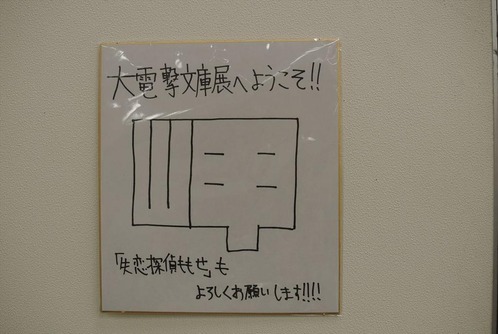 大電撃文庫展へようこそ!!
「失恋探偵ももせ」も
よろしくお願いします!!!!